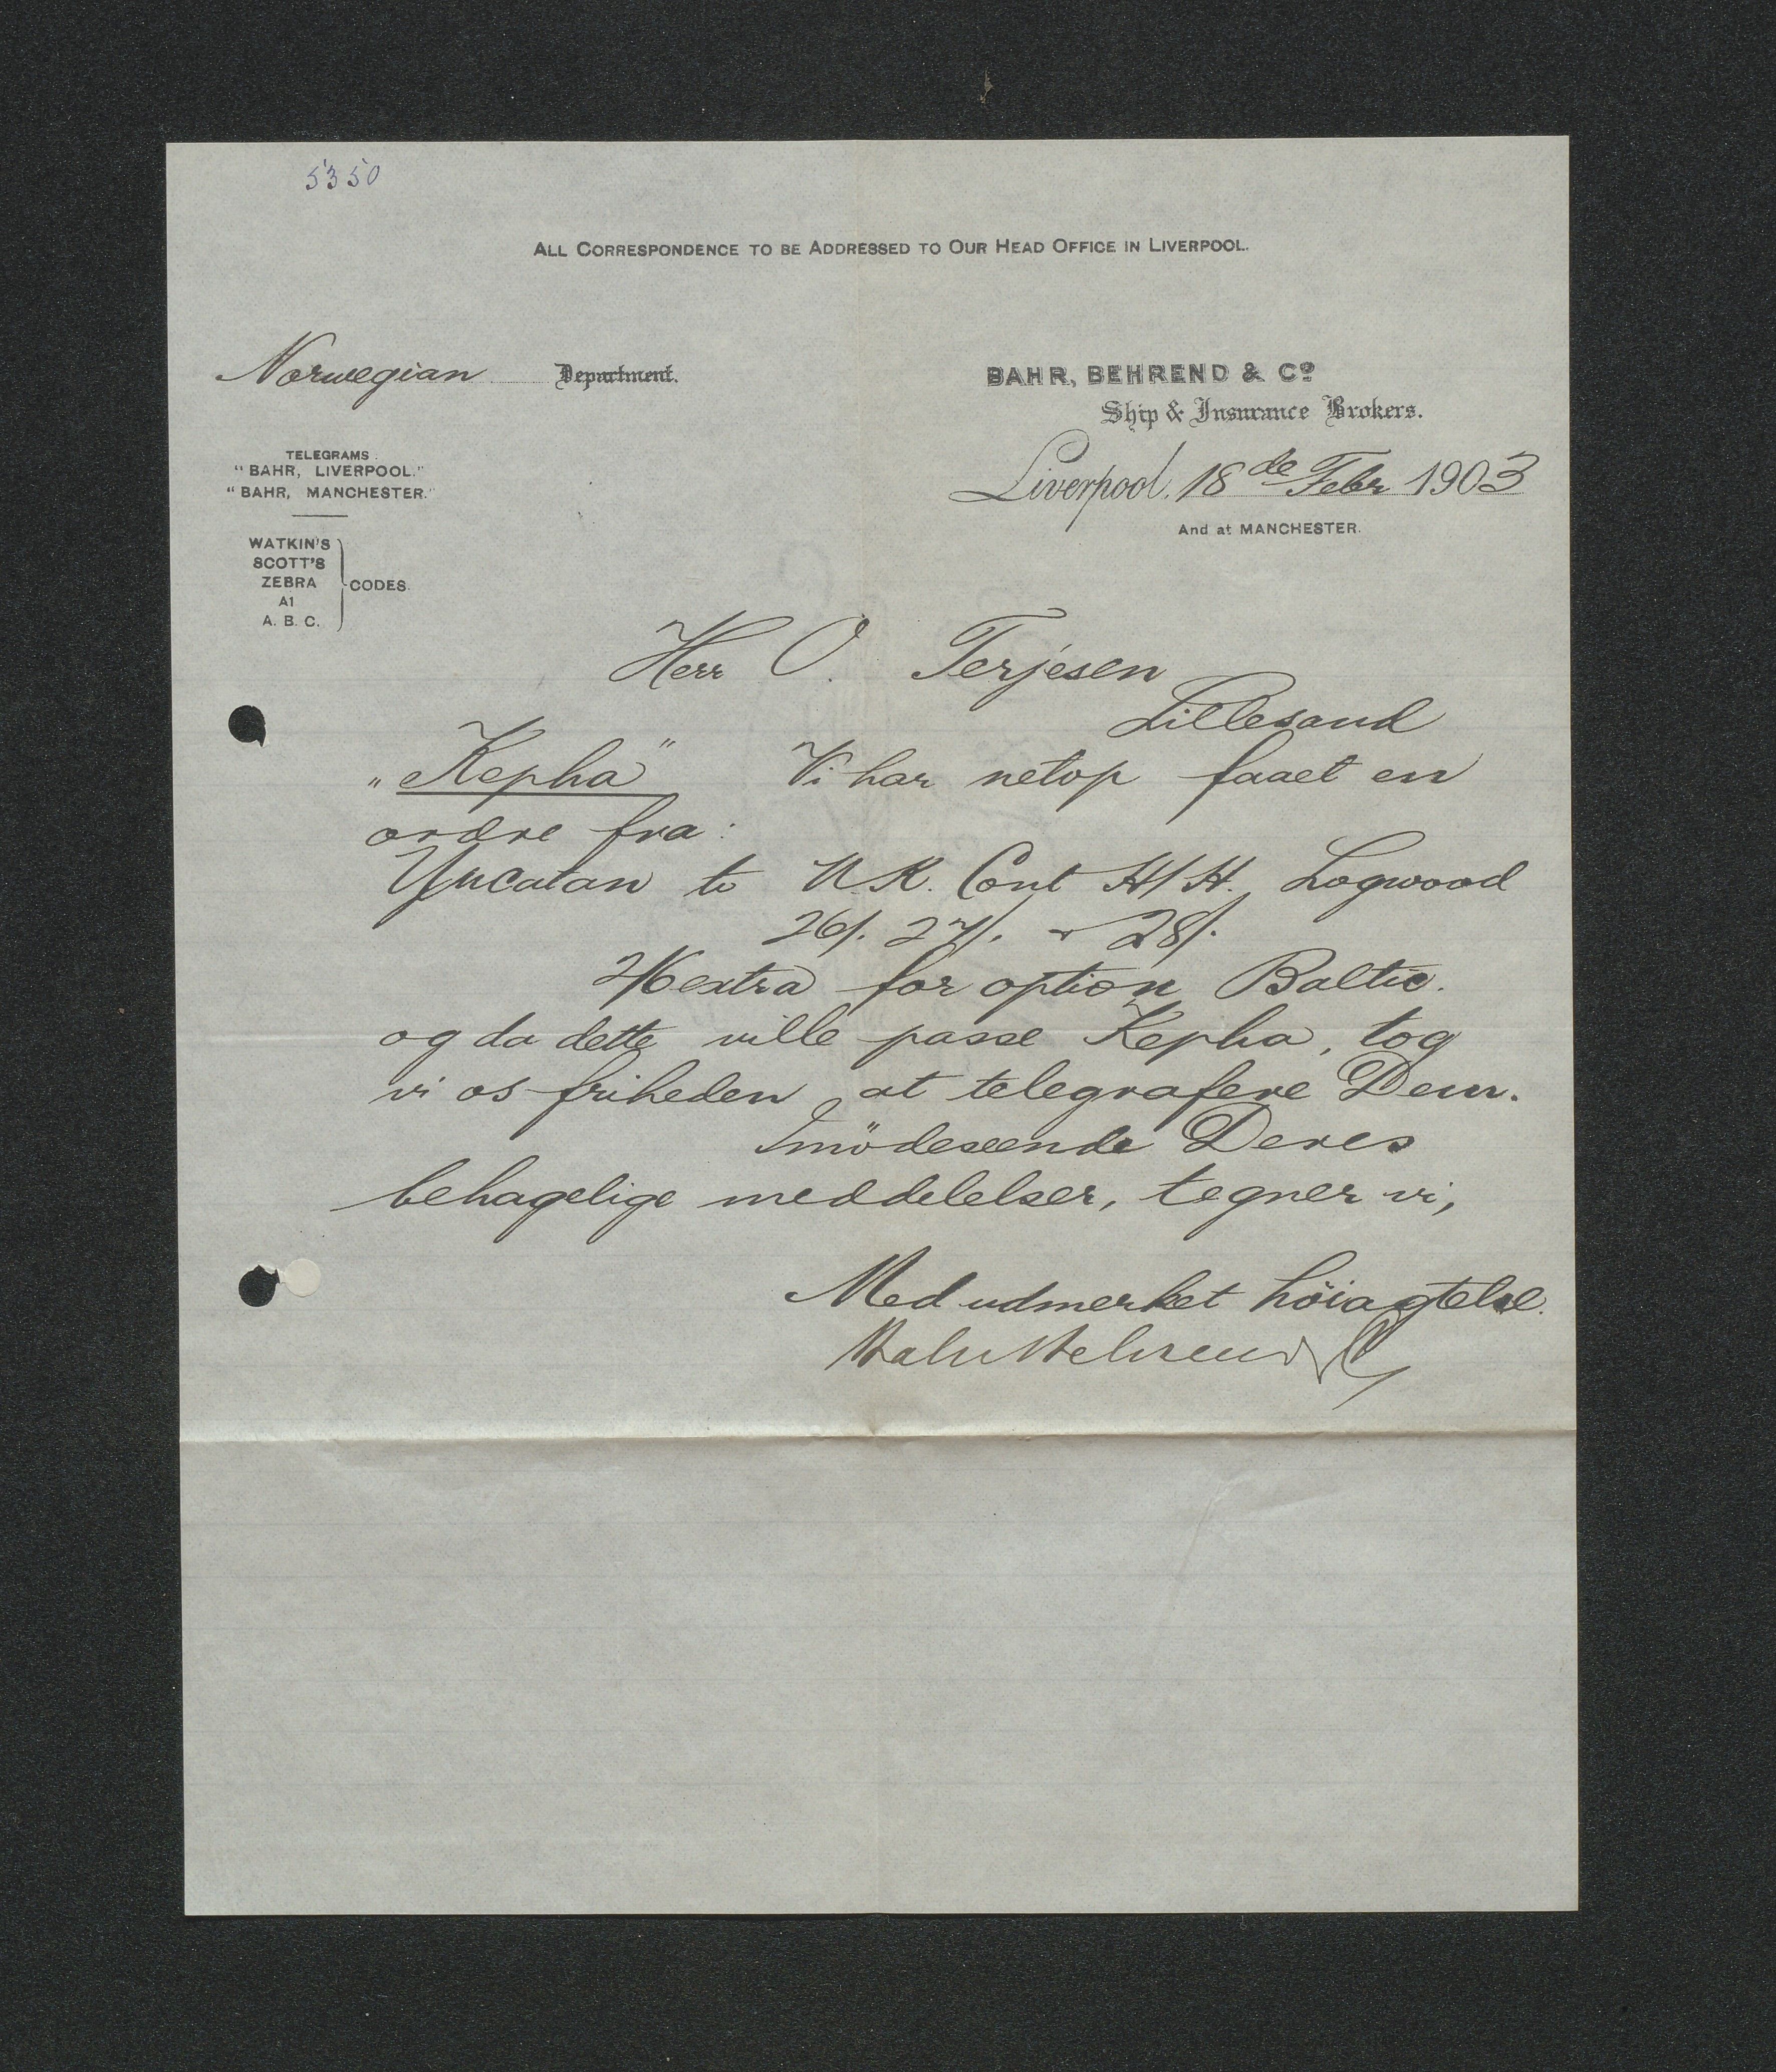 5350
ALL CORRESPONDENCE TO BE ADDRESSED TO OUR HEAD OFFICE IN LIVERPOOL.
Norwegian Department.
BAHR, BEHREND & Co
Ship & Insurance Brokers.
Liverpool, 18 de Febr 1903
And at MANCHESTER.
TELEGRAMS:
"BAHR, LIVERPOOL."
"BAHR, MANCHESTER."
WATKIN'S
SCOTT'S
ZEBRA
A1
A. B. C.
CODES.
Herr O. Terjesen
Lillesand
„Kepha" Vi har netop faaet en
ordre fra:
Yucatan to U.K. Cont H/H. Logwood
26/. 27/. or 28/.
2/6 extra for option Baltic.
og da dette ville passe Kepha, tog
vi os friheden at telegrafere Dem.
Imödeseende Deres
behagelige meddelelser, tegner vi,
Med udmerket höiagtelse.
Bahr Behrend & Co